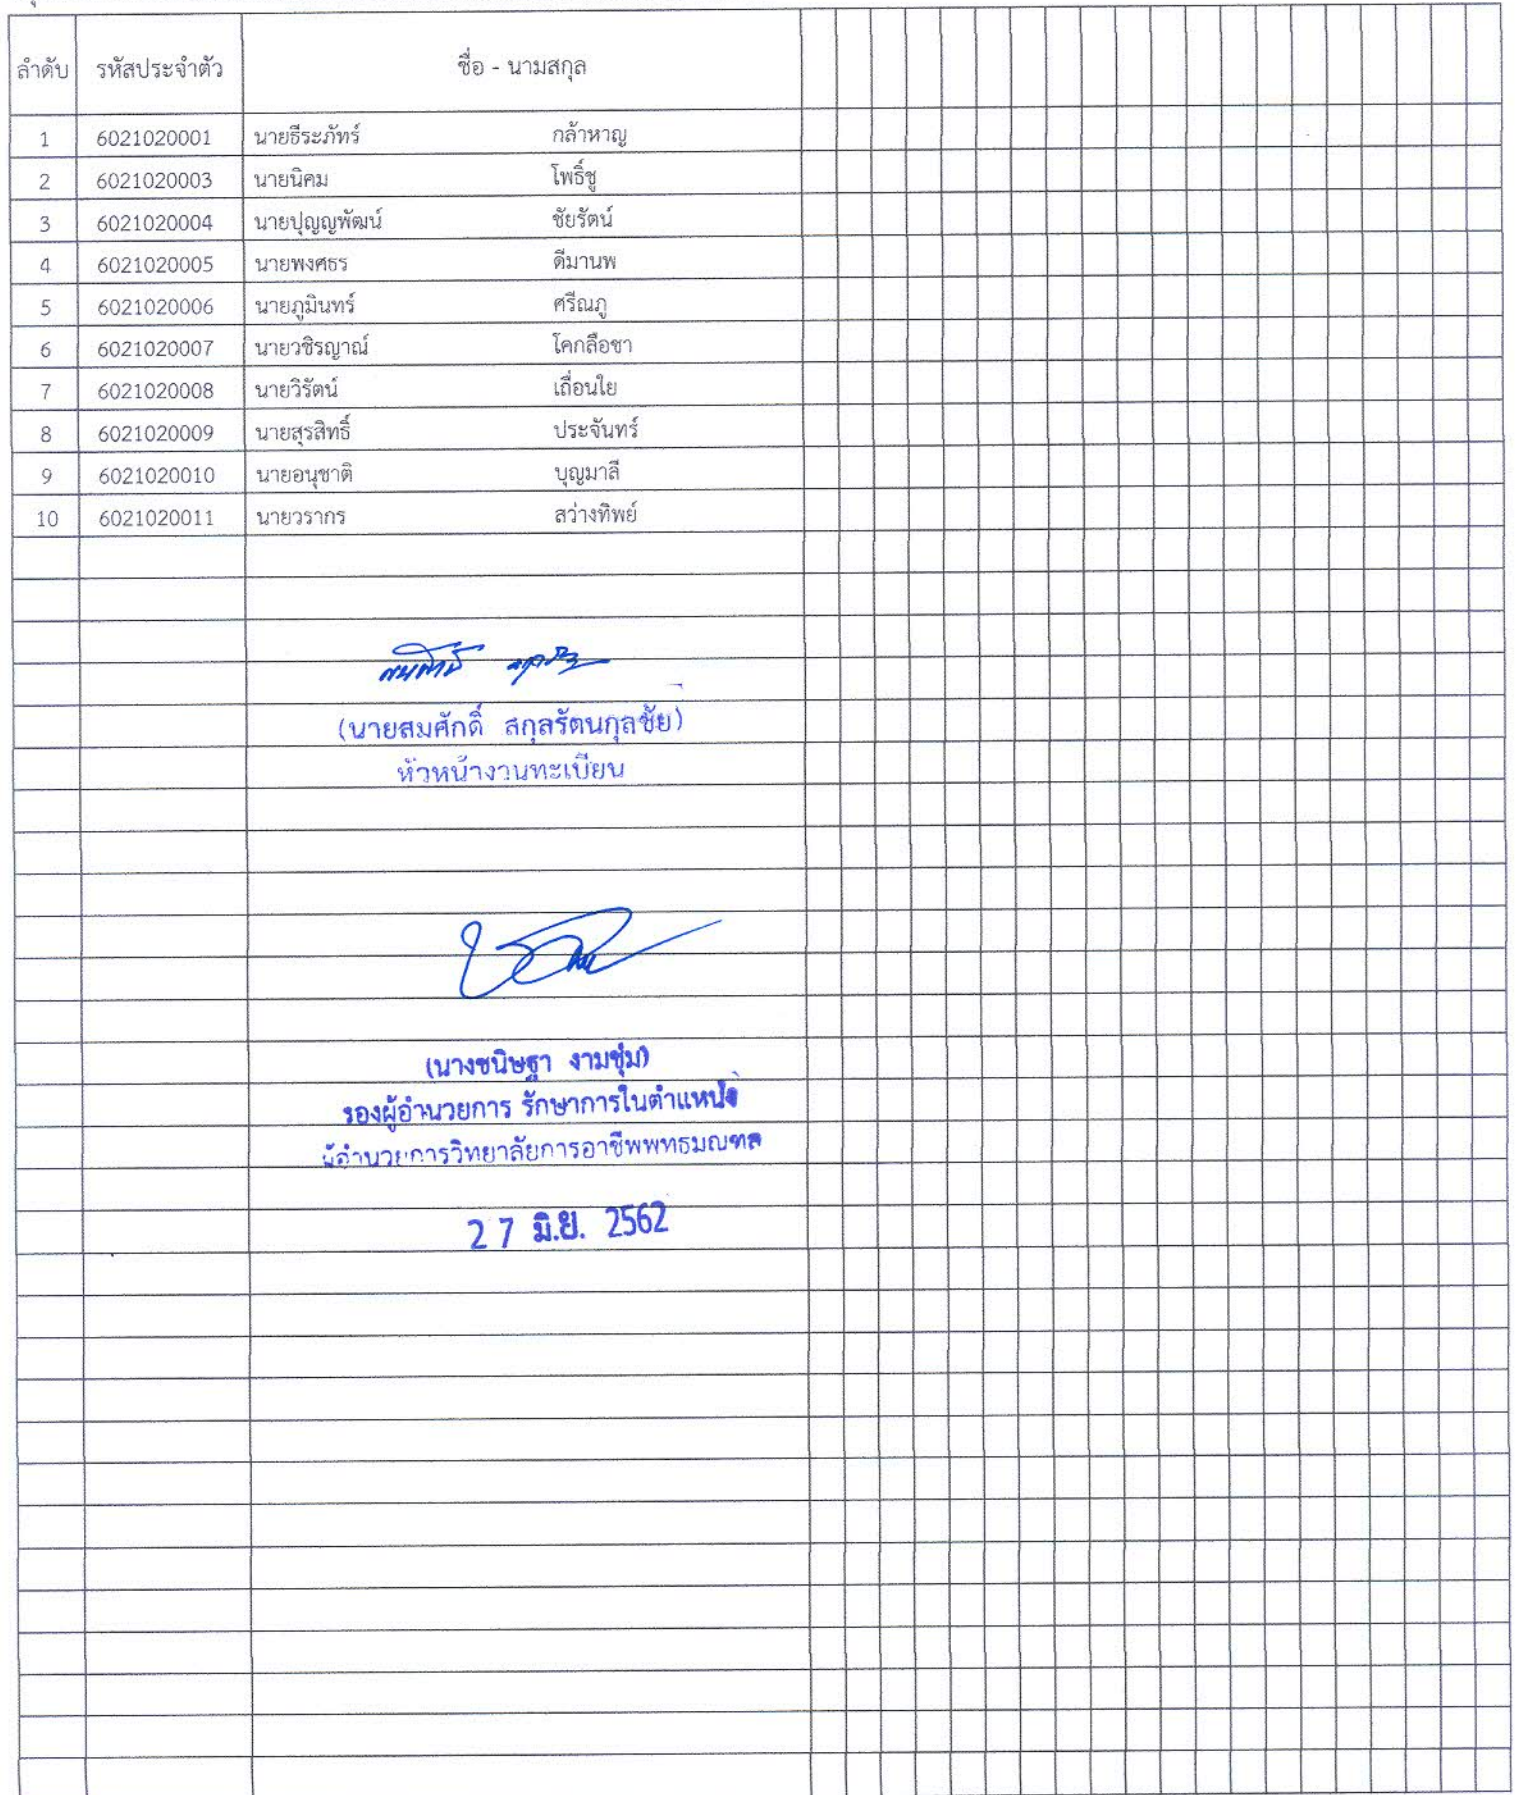 ลำดับ รหัสประจำตัว ชื่อ - นามสกุล
1 6021020001 นายธีระภัทร์ กล้าหาญ
2 6021020003 นายนิคม โพธิ์ชู
3 6021020004 นายปุญญพัฒน์ ชัยรัตน์
4 6021020005 นายพงศธร ดีมานพ
5 6021020006 นายภูมินทร์ ศรีณภู
6 6021020007 นายวชิรญาณ์ โคกลือชา
7 6021020008 นายวิรัตน์ เถื่อนใย
8 6021020009 นายสุรสิทธิ์ ประจันทร์
9 6021020010 นายอนุชาติ บุญมาลี
10 6021020011 นายวรากร สว่างทิพย์
(นายสมศักดิ์ สกุลรัตนกุลชัย)
หัวหน้างานทะเบียน
(นางชนิษฐา งามชุ่ม)
รองผู้อำนวยการ รักษาการในตำแหน่ง
ผู้อำนวยการวิทยาลัยการอาชีพพุทธมณฑล
27 มิ.ย. 2562